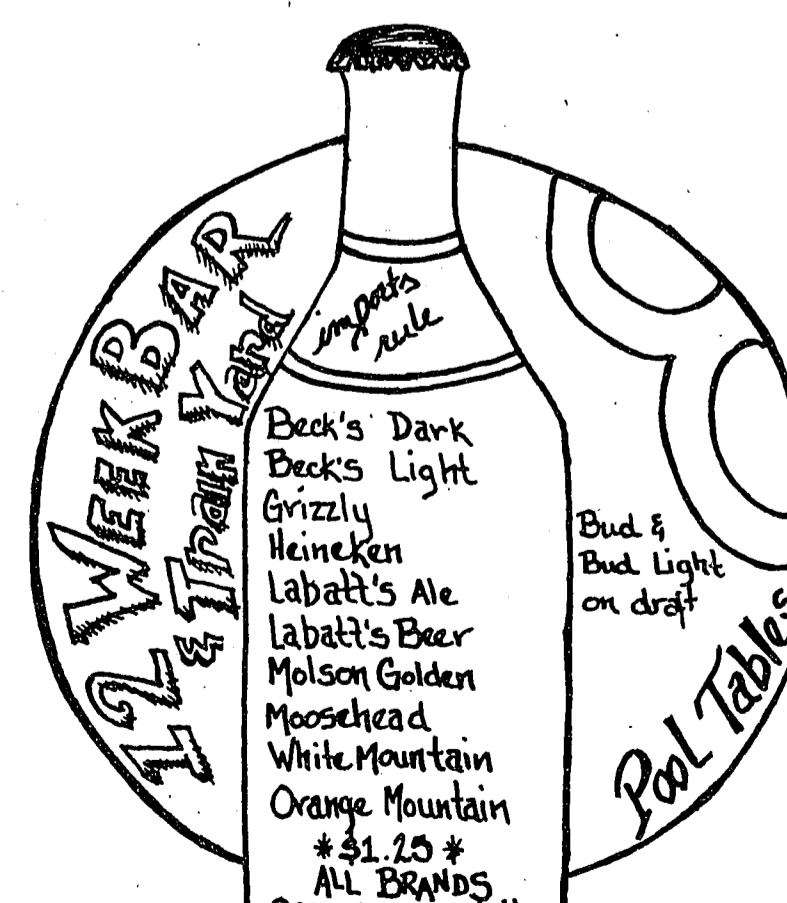 12 WEEK BAR
& Train Yard
imports
rule
Beck's Dark
Beck's Light
Grizzly
Heineken
Labatt's Ale
Labatt's Beer
Molson Golden
Moosehead
White Mountain
Orange Mountain
*$1.25*
ALL BRANDS
Bud &
Bud Light
on draft
Pool Tables